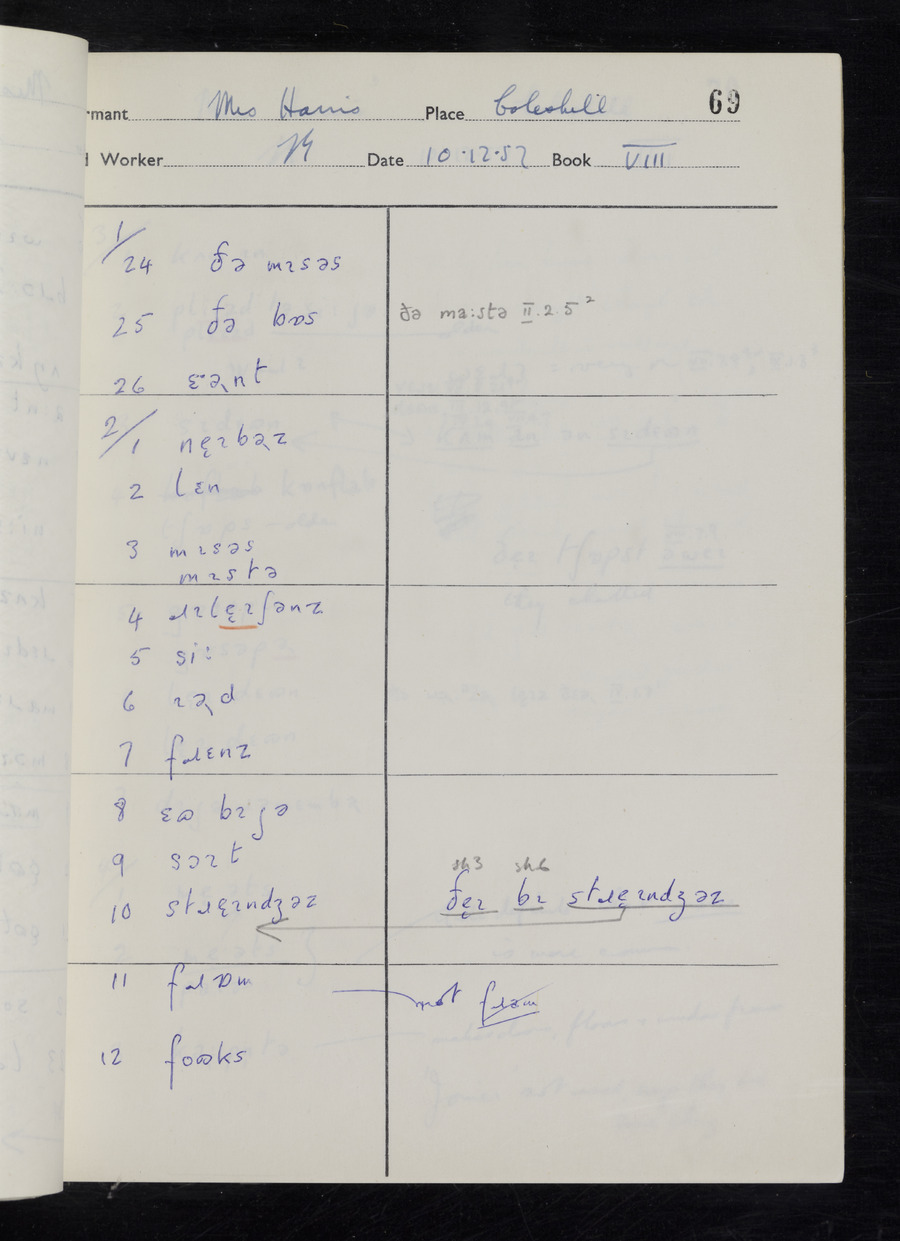 69
rmant Mrs Harris Place Coleshill
Worker Date 10·12·57 Book VIII
1/
24 ðə mɪsəs
25 ðə bɒs ðə maːstə II.2.5²
26 ɛˑə̢nt
2/
1 nẹɪbə̢z
2 lɛn
3 mɪsəs
mɪstə
4 ɹɪlẹɪʃənz
5 siː
6 ɪə̢d
7 fɹɛnz
8 ɛɷ bɪʃə
9 sɔɪt sh3 sh6
10 stɹẹɪndʒəz ðẹɪ bɪ stɹẹɪndʒəz
11 fɹɒm not fɹəm
12 foɷks